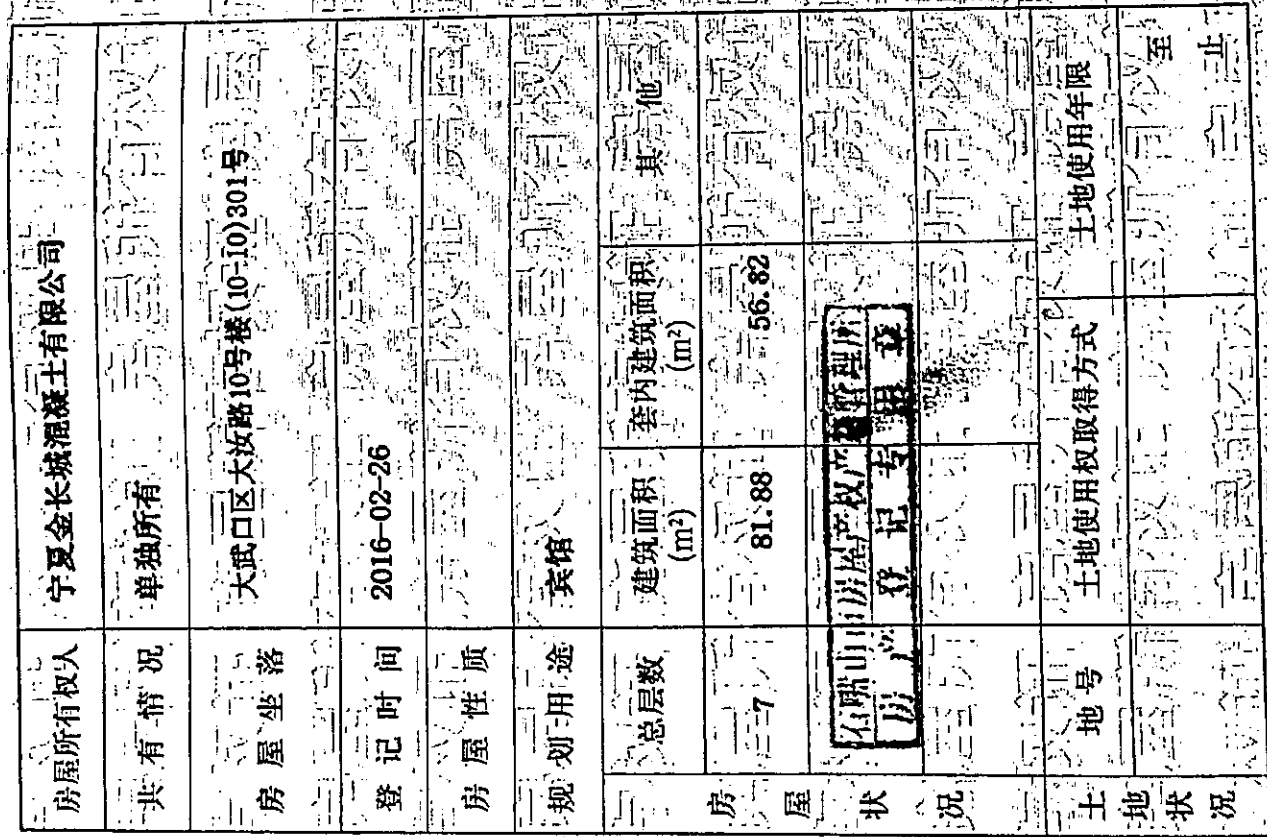 房屋所有权人 宁夏金长城混凝土有限公司
共有情况 单独所有
房屋坐落 大武口区大汝路10号楼(10-10)301号
登记时间 2016-02-26
房屋性质
规划用途 宾馆
房屋状况 总层数 建筑面积(m²) 套内建筑面积(m²) 其他
7 81.88 56.82
石嘴山市房屋产权产籍管理所
房产登记专用章
土地状况 地号 土地使用权取得方式 土地使用年限
至 止